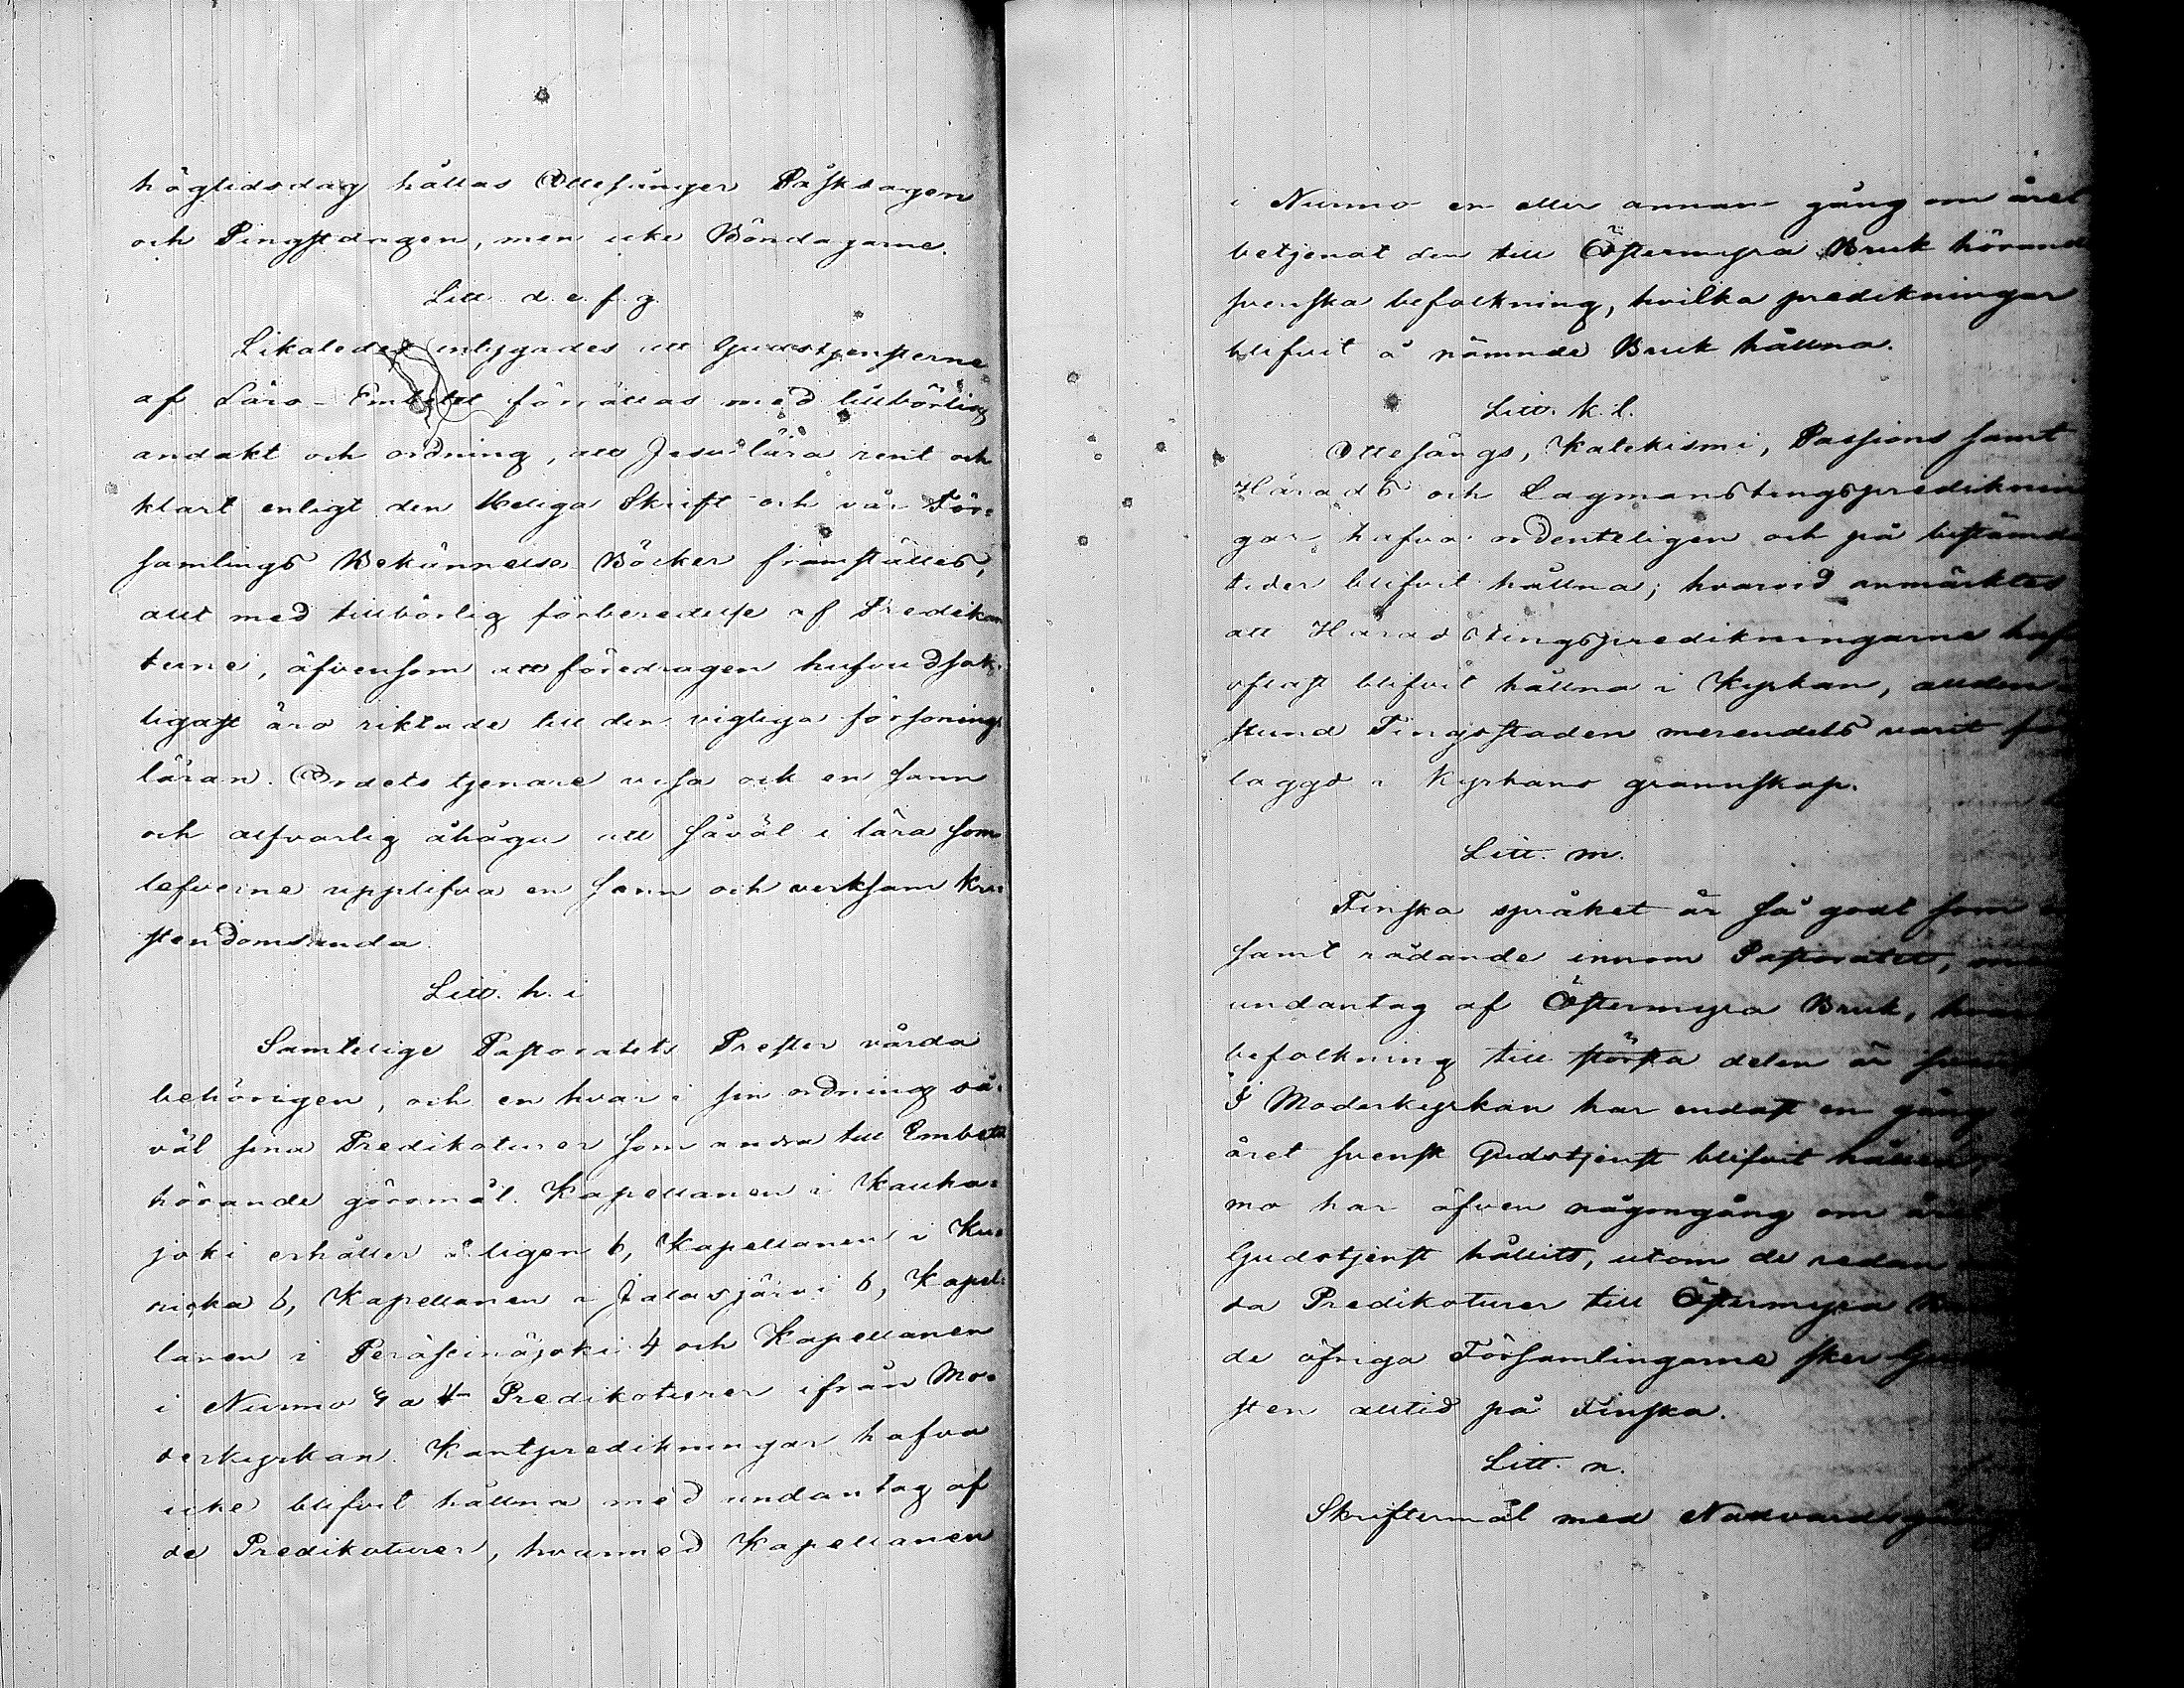 högtidsdag hållas Ottesånger Påskdagen
och Pingstdagen, men icke Böndagarne.
Litt. d. e. f. g.
Likaledes intygades att Gudstjensterne
af Läro-Embetet förrättas med tillbörlig
andakt och ordning, att Jesu lära rent och
klart enligt den Heliga Skrift och vår För=
samlings Bekännelse Böcker framställes,
allt med tillbörlig förberedelse af Predikan
terne, äfvensom att föredragen hufvudsak=
ligast äro riktade till den vigtiga försonings
läran. Ordets tjenare visa ock en sann
och alfvarlig åhåga att såväl i lära som
lefverne upplifva en sann och verksam kri=
stendomsanda.
Litt. h. i
Samtelige Pastoratets Prester vårda
behörigen, och en hvar i sin ordning så=
väl sina Predikoturer som andra till Embetet
hörande göromål. Kapellanen i Kauha=
joki erhåller årligen 6, Kapellanen i Ku=
rikka 6, Kapellanen i Jalasjärvi 6, Kapel=
lanen i Peräseinäjoki 4 och Kapellanen
i Nurmo 4 Predikoturer ifrån Mo=
derkyrkan. Kantpredikningar hafva
icke blifvit hållna med undantag af
de Predikoturer, hvarmed Kapellanen
i Nurmo en eller annan gång om året
betjenat den till Östermyra Bruk hörande
svenska befolkning, hvilka predikningar
blifvit å nämnde Bruk hållna.
Litt. k. l.
Ottesångs, Katekismi, Passions samt
Härads och Lagmanstingsprediknin
gar hafva ordenteligen och på bestämda
tider blifvit hållna; hvarvid anmärktes
att Häradstingspredikningarne haf
oftast blifvit hållna i Kyrkan, allden
stund Tingsstaden merendels varit för
laggd i Kyrkans grannskap.
Litt. m.
Finska språket är så godt som
samt rådande innom Pastoratet, med
undantag af Östermyra Bruk, hvars
befolkning till största delen är
I Moderkyrkan har endast en gång
året svensk Gudstjenst blifvit hållen,
mo har äfven någongång om året
Gudstjenst hållits, utom de redan
da Predikoturer till Östermyra Bruk
de öfriga Församlingarne sker
sten alltid på Finska.
Litt. n.
Skriftermål med Nattvardsgång